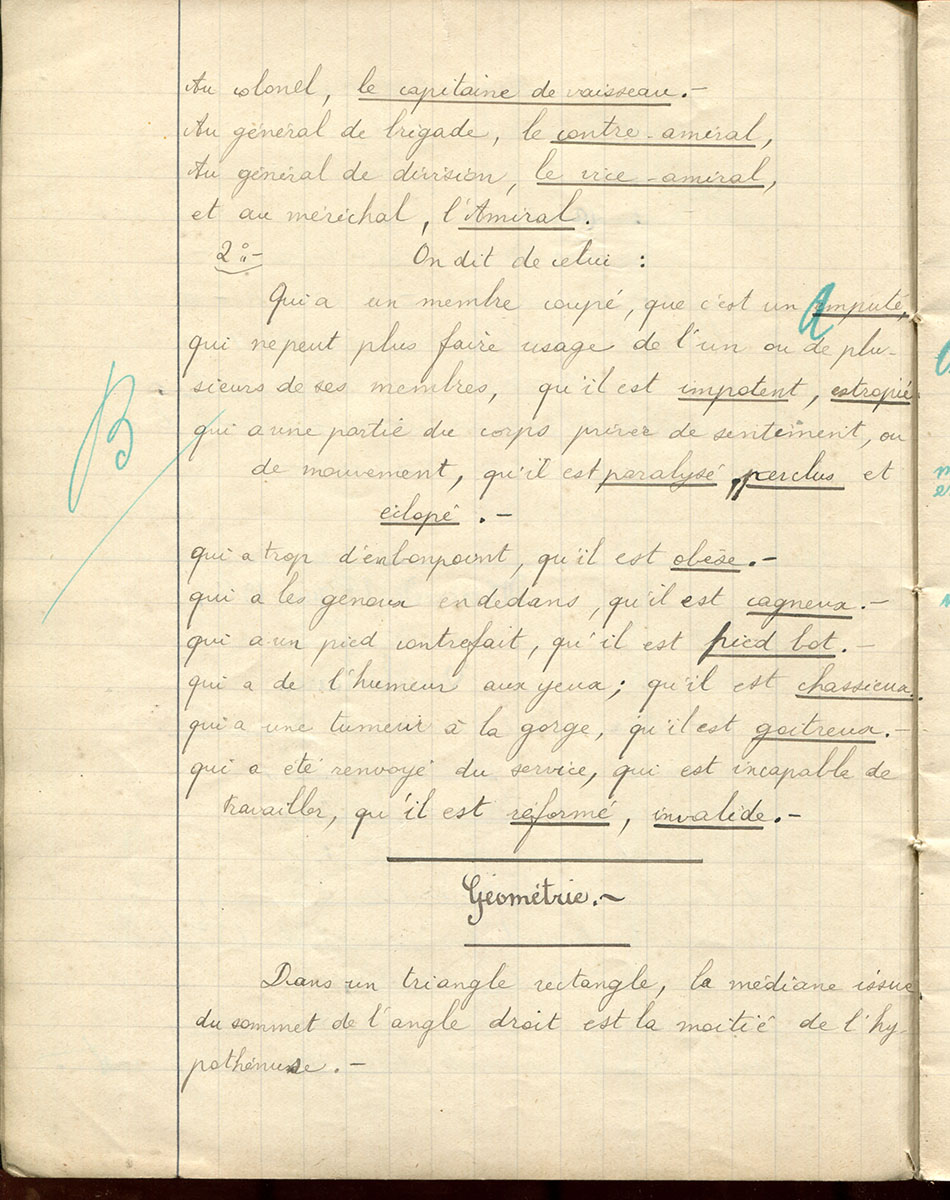 Au colonel, le capitaine de vaisseau.-
Au général de brigade, le contre-amiral,
Au général de division, le vice-amiral,
et au méréchal, l'Amiral.
2°-
On dit de celui :
Qui a un membre coupé, que c'est un amputé,
qui ne peut plus faire usage de l'un ou de plu-
sieurs de ses membres, qu'il est impotent, estropié
qui a une partie du corps priver de sentiment, ou
de mouvement, qu'il est paralysé, perclus et
éclopé.-
qui a trop d'enbonpoint, qu'il est obèse.-
qui a les genoux endedans, qu'il est cagneux.-
qui a un pied contrefait, qu'il est pied bot.-
qui a de l'humeur aux yeux; qu'il est chassieux.
qui a une tumeur à la gorge, qu'il est goitreux.-
qui a été renvoyé du service, qui est incapable de
travailler, qu'il est réformé, invalide.-
Géométrie.-
Dans un triangle rectangle, la médiane issue
du sommet de l'angle droit est la moitié de l'hy-
pothénuse.-
B